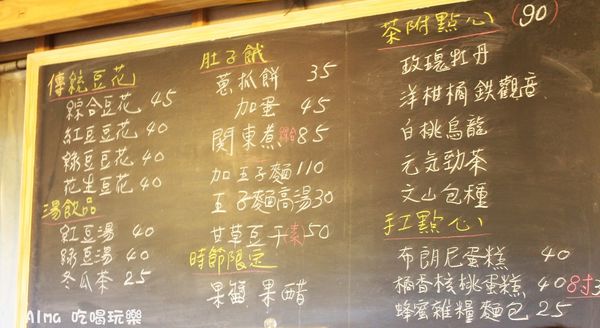 傳統豆花
綜合豆花 45
紅豆豆花 40
綠豆豆花 40
花生豆花 40
湯飲品
紅豆湯 40
綠豆湯 40
冬瓜茶 25
肚子餓
蔥抓餅 35
加蛋 45
関東煮 綜合 85
加王子麵 110
王子麵高湯 30
甘草豆干 50
時節限定
果釀 果醋
茶附點心 90
玫瑰牡丹
洋柑橘鉄觀音
白桃烏龍
元気勁茶
文山包種
手工點心
布朗尼蛋糕 40
橘香核桃蛋糕 40 8寸
蜂蜜雜糧麵包 25
Alma 吃喝玩樂